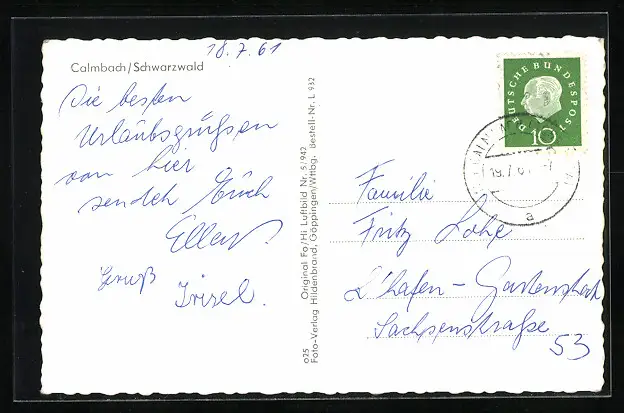 18.7.61
Calmbach/Schwarzwald
Die besten
Urlaubsgrüße
von hier
sendet Euch
Ellen.
Gruß
o25 Original Fo/Hi Luftbild Nr. 5/942
Foto-Verlag Hildenbrand, Göppingen/Wttbg. Bestell-Nr. L 932
DEUTSCHE BUNDESPOST
10
19.7.61
a
Familie
Fritz Lohe
L'hafen - Gartenstadt
Sachsenstraße
53